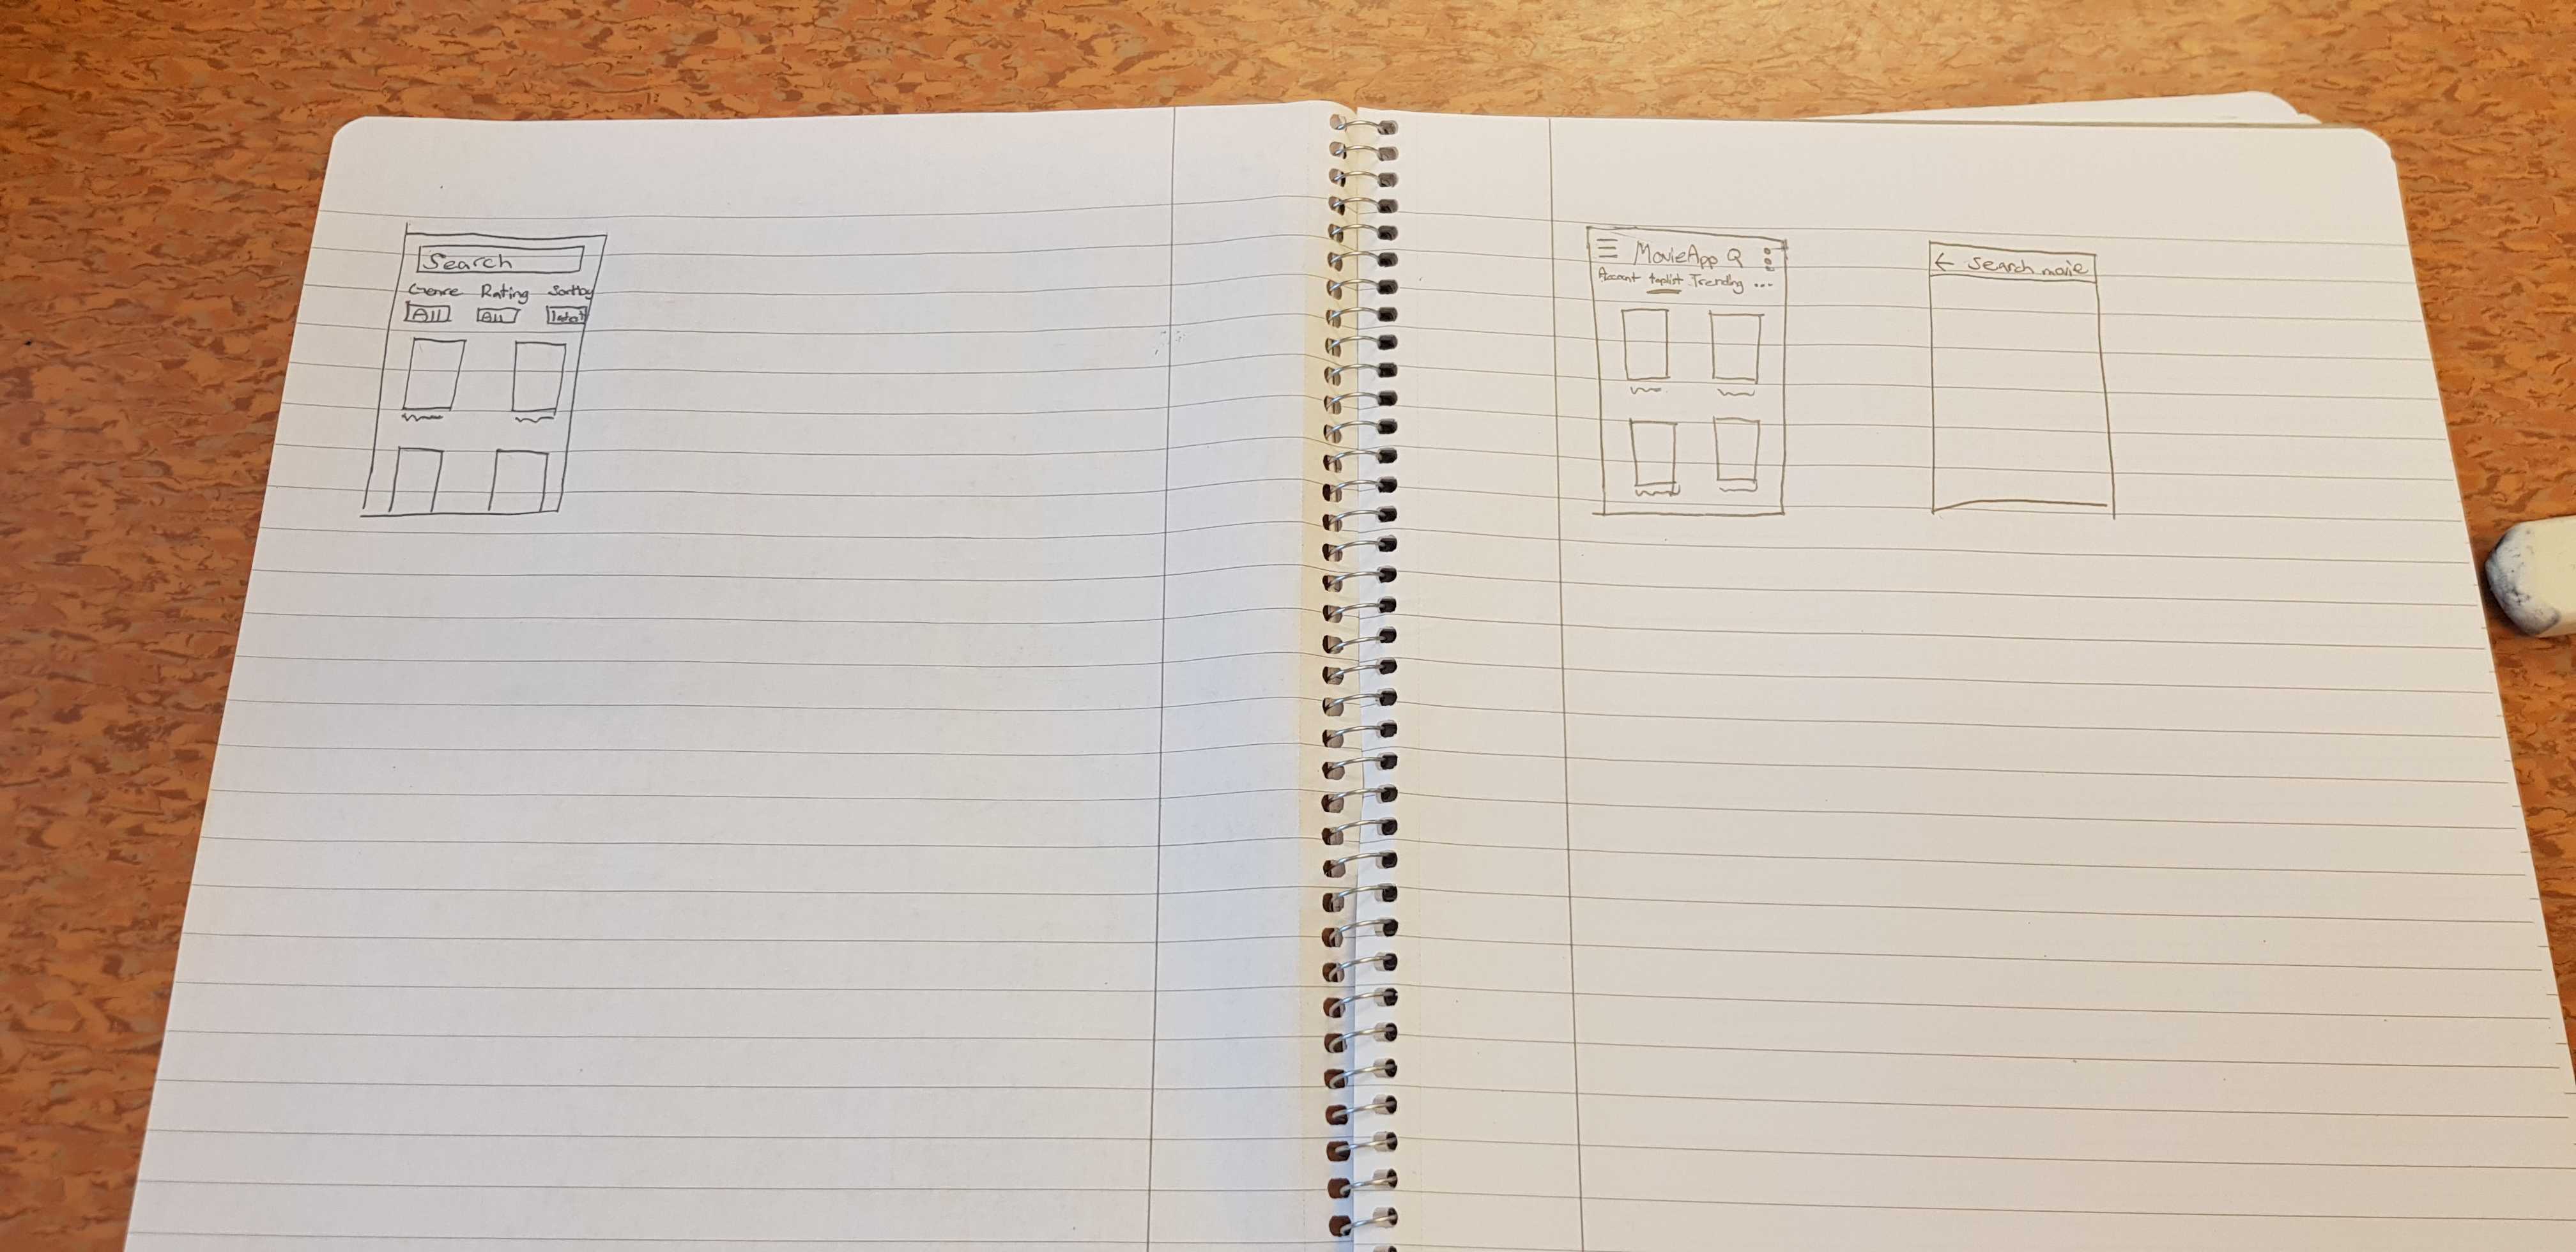 Search
Genre Rating Sortby
All All latest
MovieApp
Account toplist Trending ...
← Search movie